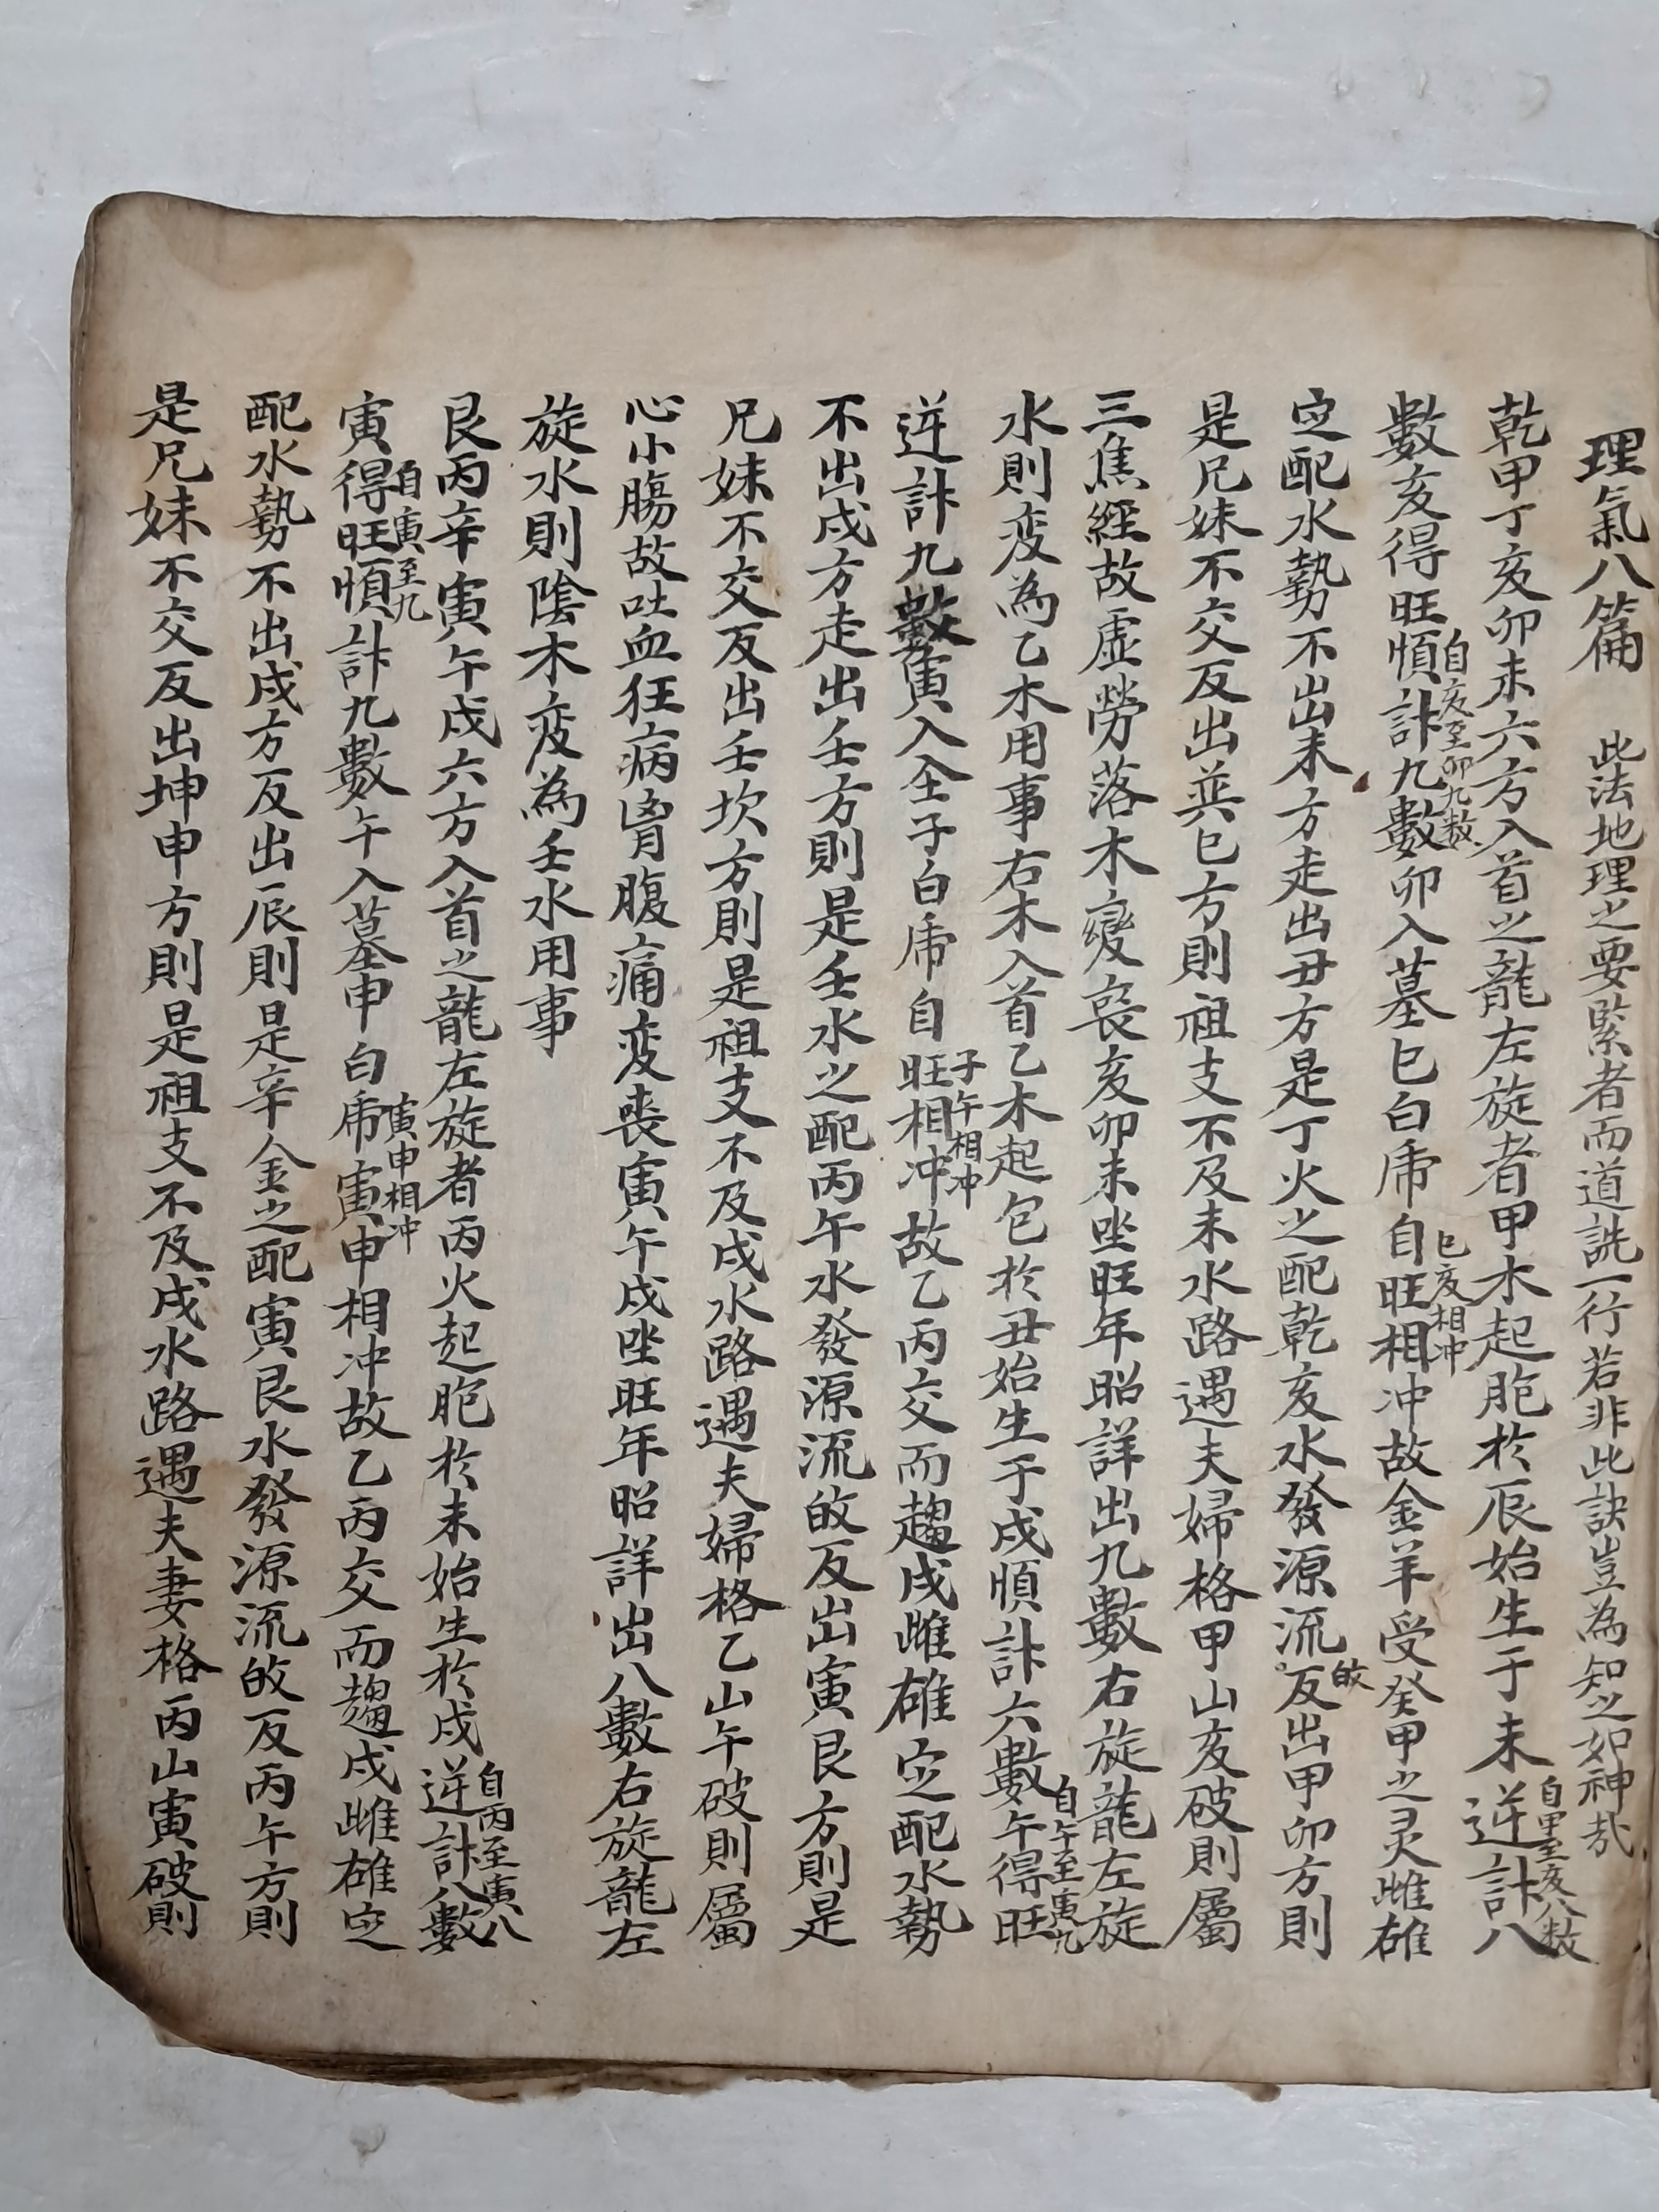 理氣八篇　此法地理之要緊者而道詵一行若非此訣豈為知之如神哉
乾甲丁亥卯未六方入首之龍左旋者甲木起胞於辰始生于未逆計八
自甲至亥八数
數亥得旺順計九數卯入墓巳白乕自旺相冲故金羊受癸甲之灵雌雄
自亥至卯九数
巳亥相冲
定配水勢不出未方走出丑方是丁火之配乾亥水發源流反出甲卯方則
故
是兄妹不交反出巽巳方則祖支不及未水路遇夫婦格甲山亥破則屬
三焦經故虛勞落木變喪亥卯未坐旺年昭詳出九數右旋龍左旋
水則变為乙木用事右木入首乙木起包於丑始生于戌順計六數午得旺
自午至寅九
逆計九數寅入全子白乕自旺相冲故乙丙交而趨戌雌雄定配水勢
子午相冲
不出戌方走出壬方則是壬水之配丙午水發源流故反出寅艮方則是
兄妹不交反出壬坎方則是祖支不及戌水路遇夫婦格乙山午破則屬
心小膓故吐血狂病胷腹痛变喪寅午戌坐旺年昭詳出八數右旋龍左
旋水則陰木变為壬水用事
艮丙辛寅午戌六方入首之龍左旋者丙火起胞於未始生於戌逆計八數
自丙至寅八
寅得旺順計九數午入墓申白乕寅申相冲故乙丙交而趨戌雌雄定
自寅至九
寅申相冲
配水勢不出戌方反出辰則是辛金之配寅艮水發源流故反丙午方則
是兄妹不交反出坤申方則是祖支不及戌水路遇夫妻格丙山寅破則